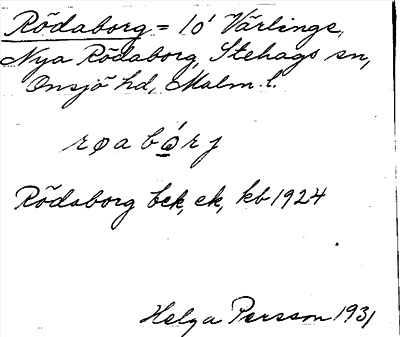 Rödaborg = 10' Värlinge,
Nya Rödaborg, Stehags sn,
Onsjö hd, Malm. l.
røabǫ́rj
Rödaborg bek, ek, kb 1924
Helga Persson 1931